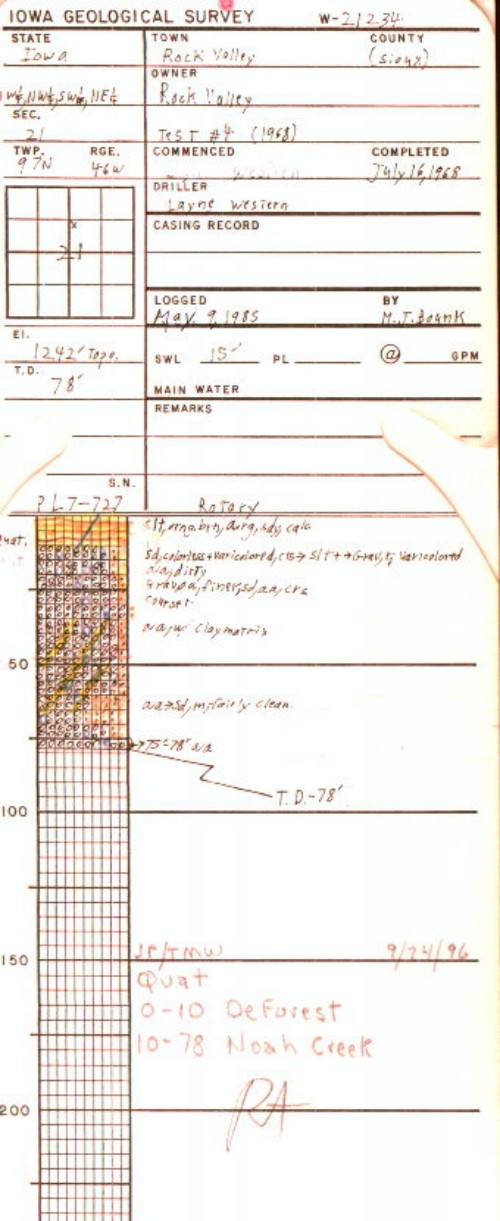 IOWA GEOLOGICAL SURVEY W-21234
STATE TOWN COUNTY
Iowa Rock Valley (Sioux)
OWNER
NW¼, SW¼, NE¼ Rock Valley
SEC.
21 Test #4 (1968)
TWP. RGE. COMMENCED COMPLETED
97N 46W July 16, 1968
DRILLER
Layne Western
CASING RECORD
21
LOGGED BY
May 9, 1985 M.J. Bounk
El.
1242' Topo. SWL 15' PL @ GPM
T.D.
78' MAIN WATER
REMARKS
S.N.
PL7-727 Rotary
Quat. slt, orng, brn, arg, sdy, calc
sd, colorless + varicolored, crs → slt + → Grav, f, Varicolored
a/a, dirty
Grav, a/a, finer, sd, a/a, crs
courser
a/a, w/ clay matrix
50
a/a → sd, m, fairly clean.
→75'-78' a/a
T.D.-78'
100
150 JP/TMW 9/24/96
Quat
0-10 DeForest
10-78 Noah Creek
RA
200